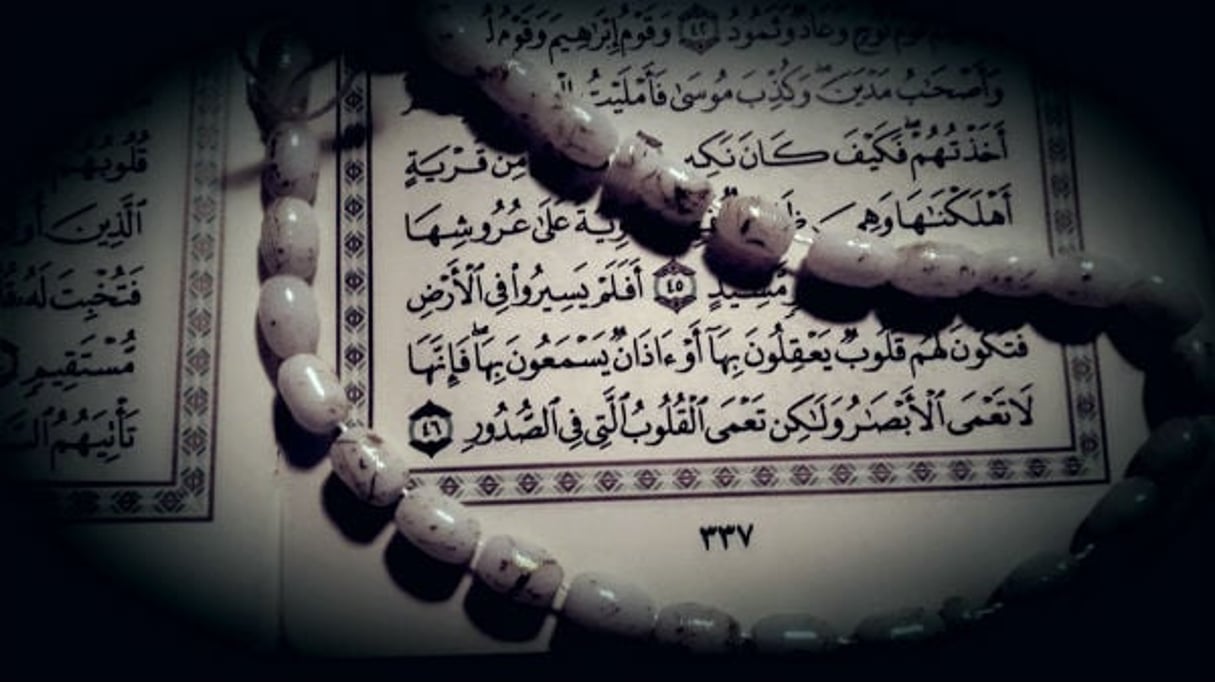 قَوْمُ نُوحٍ وَعَادٌ وَثَمُودُ ٤٢ وَقَوْمُ إِبْرَٰهِيمَ وَقَوْمُ
وَأَصْحَٰبُ مَدْيَنَ ۖ وَكُذِّبَ مُوسَىٰ فَأَمْلَيْتُ
أَخَذْتُهُمْ ۖ فَكَيْفَ كَانَ نَكِ مِن قَرْيَةٍ
أَهْلَكْنَٰهَا وَهِيَ عَلَىٰ عُرُوشِهَا
مَّشِيدٍ ٤٥ أَفَلَمْ يَسِيرُوا۟ فِى ٱلْأَرْضِ
فَتَكُونَ لَهُمْ قُلُوبٌ يَعْقِلُونَ بِهَآ أَوْ ءَاذَانٌ يَسْمَعُونَ بِهَا ۖ فَإِنَّهَا
لَا تَعْمَى ٱلْأَبْصَٰرُ وَلَٰكِن تَعْمَى ٱلْقُلُوبُ ٱلَّتِى فِى ٱلصُّدُورِ ٤٦
٣٣٧
قُلُوبُهُمْ
ٱلَّذِينَ
فَتُخْبِتَ لَهُۥ
مُّسْتَقِيمٍ
تَأْتِيَهُمُ